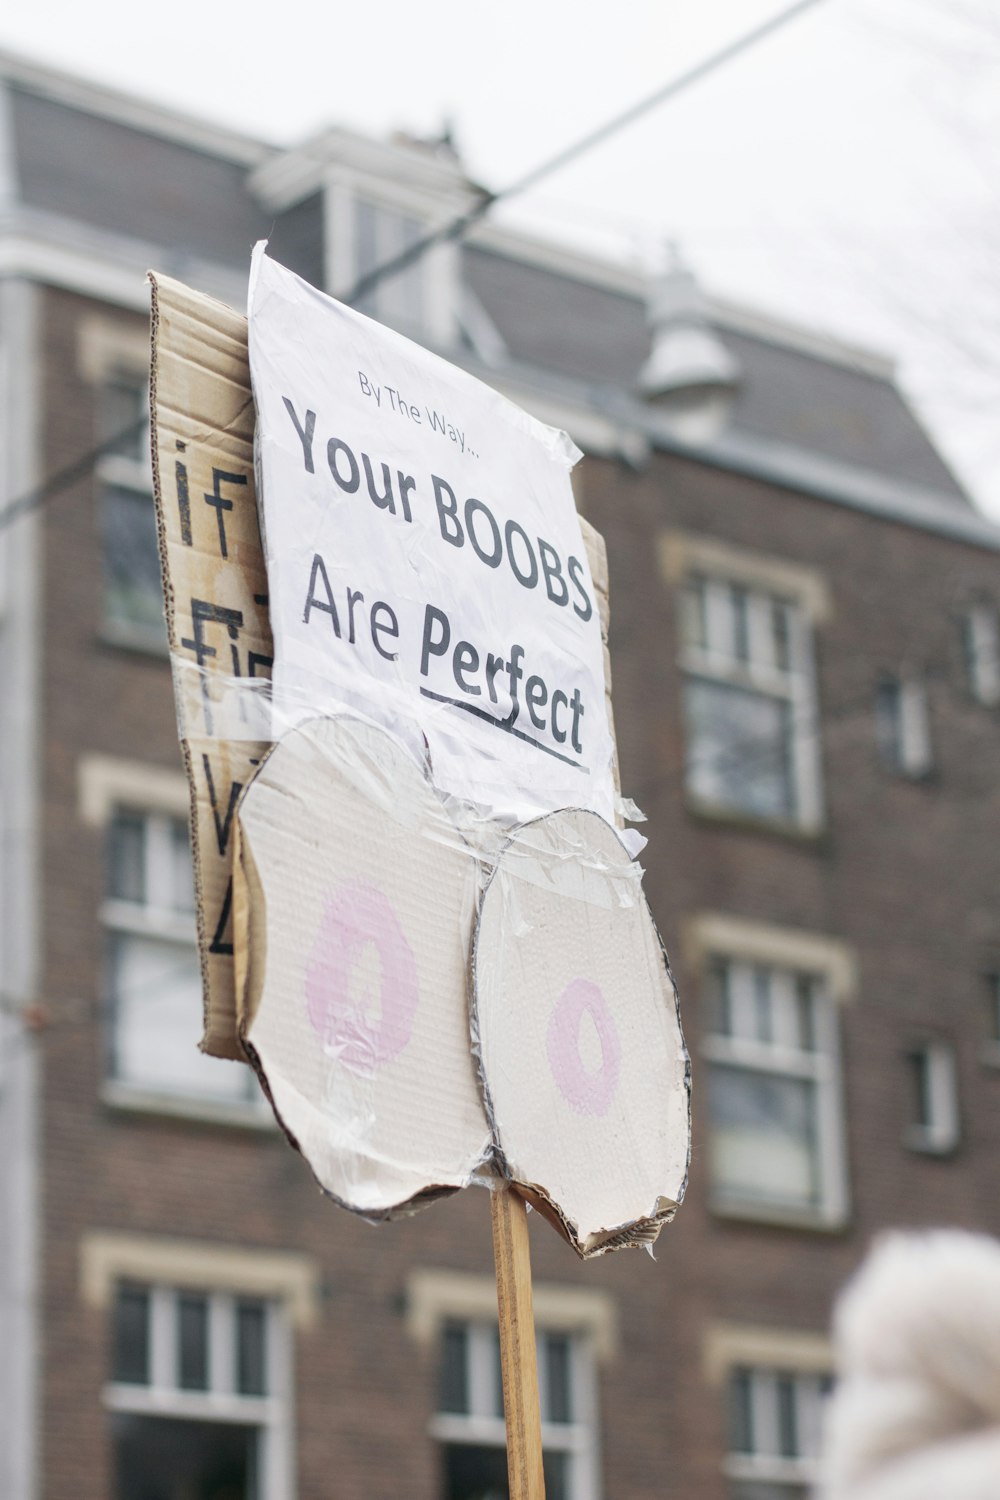 By The Way...
Your BOOBS
Are Perfect
if